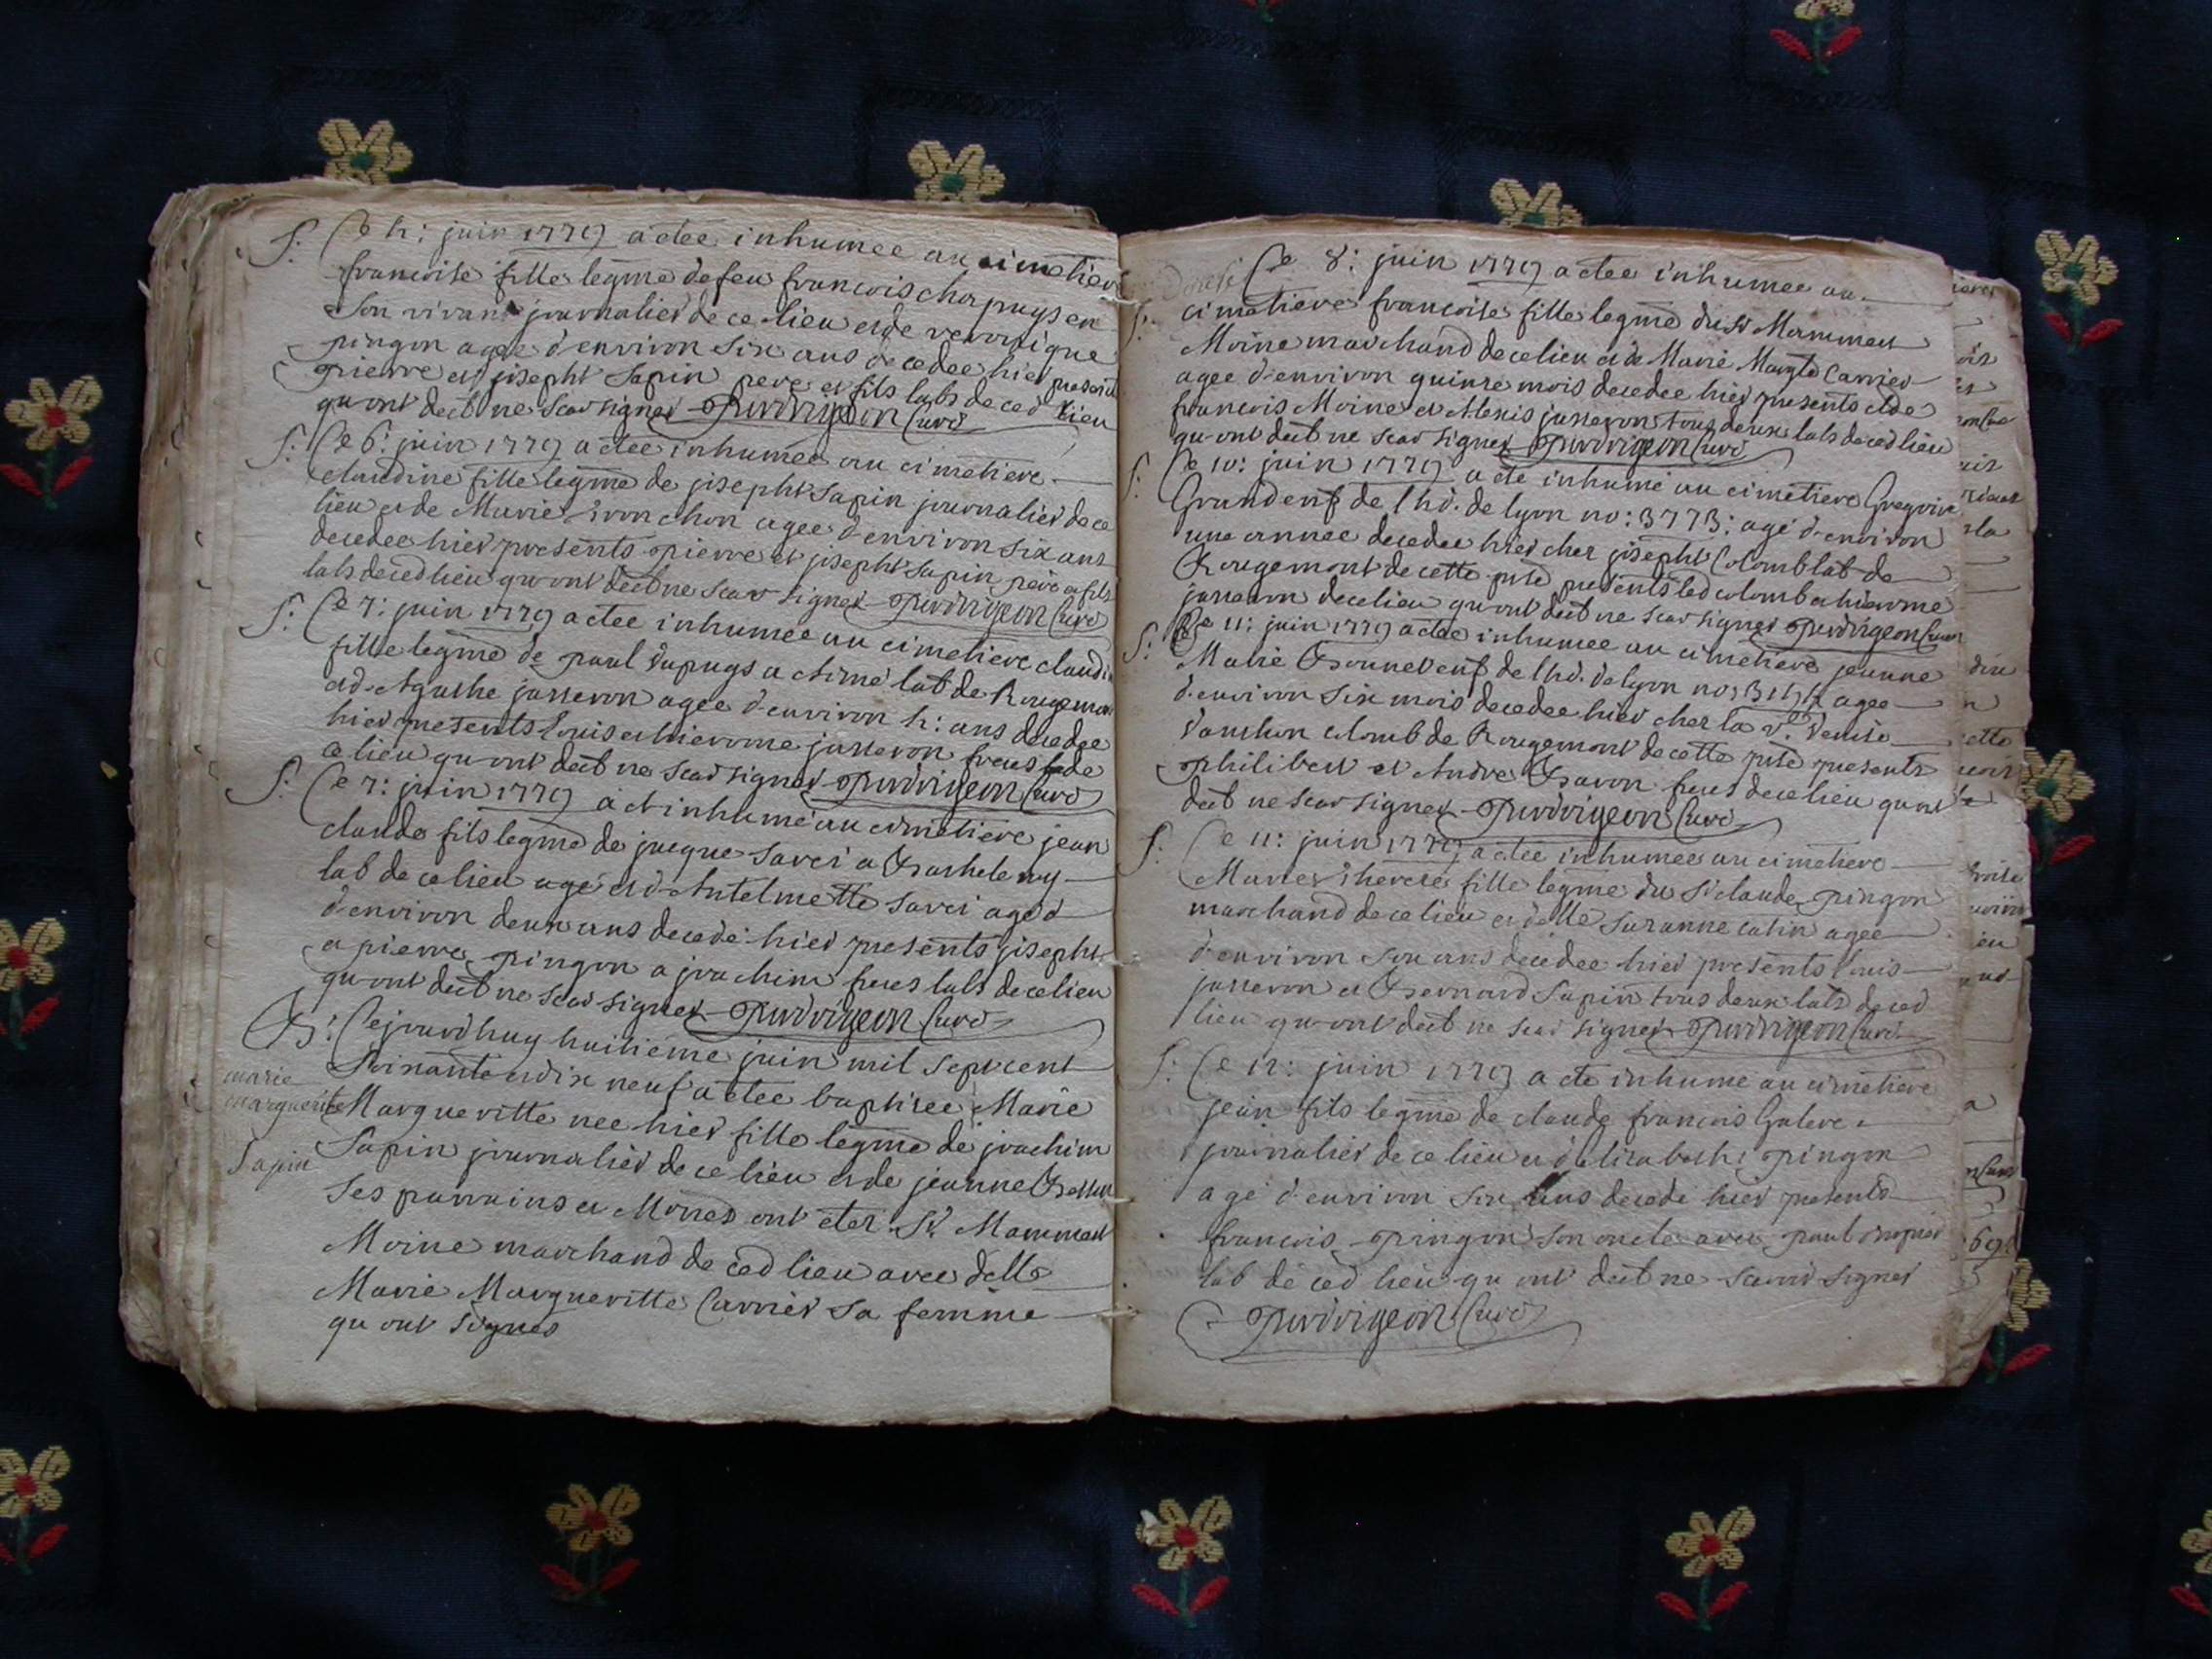 S: Ce 4: juin 1779 a étée inhumee au cimetiere
francoise fille legme de feu francois chapuys en
son vivant journalier de ce lieu et de veronique
pingon agée d'environ six ans decedee hier presents
pierre et joseph sapin pere et fils labs de ced lieu
qu ont declt ne scav signer Purdrigeon Curé
S: Ce 6: juin 1779 a étée inhumée au cimetiere
claudine fille legme de joseph sapin journalier de ce
lieu et de Marie agee d'environ six ans
decedee hier presents pierre et joseph sapin pere et fils
labs deced lieu qu ont declt ne scav signer Purdrigeon Curé
S: Ce 7: juin 1779 a étee inhumee au cimetiere
fille legme de paul dupuys a Aimé lab de Rougemont
et d'Agathe jasseron agee d'environ 4: ans decedee
hier presents Louis et hierome jasseron freres de
ce lieu qu ont declt ne scav signer Purdrigeon Curé
S: Ce 7: juin 1779 a ét inhumé au cimetiere jean
claude fils legme de jacque savei a Barthelemy
lab de ce lieu agé et d'Antelmette savei agé d
d'environ deux ans decedé hier presents joseph
a pierre pingon a joachim freres labs de ce lieu
qu ont declt ne scav signer Purdrigeon Curé
B: Cejourdhuy huitieme juin mil sept cent
Soixante et dix neuf a étee baptisee Marie
marie
marguerite Margueritte nee hier fille legme de joachim
Sapin Sapin journalier de ce lieu et de jeanne
Ses parrains et Mores ont éter Sr. Mammert
Moine marchand de ced lieu avec delle
Marie Margueritte Carrier sa femme
qu ont signes
Ce 8: juin 1779 a étee inhumee au
S: cimetiere francoise fille legme du Sr Mammert
Moine marchand de ce lieu et de Marie Margte Carrier
agee d'environ quinze mois decedee hier presents
francois Moine et Alexis jasseron tous deux labs deced lieu
qu ont declt ne scav signer Purdrigeon Curé
S: Ce 10: juin 1779 a été inhumé au cimetiere Gregoire
Grand enf de l hd. de lyon no: 3773: agé d'environ
une annee decedee hier chez joseph Colomb lab de
Rougemont de cette psse presents led colomb a hierome
jasseron de ce lieu qu ont declt ne scav signer Purdrigeon Curé
S: Ce 11: juin 1779 a étee inhumee au cimetiere jeanne
Marie Bonnet enf de l hd. de lyon agee
d'environ six mois decedee hier chez la ve. Denise
colomb de Rougemont de cette psse presents
philibert et Andre Baron freres de ce lieu qu ont
declt ne scav signer Purdrigeon Curé
S: Ce 11: juin 1779 a étee inhumee au cimetiere
Marie therese fille legme du Sr claude pingon
marchand de ce lieu et delle suzanne catin agee
d'environ six ans decedee hier presents Louis
jasseron et Bernard Sapin tous deux labs deced
lieu qu ont declt ne scav signer Purdrigeon Curé
S: Ce 12: juin 1779 a été inhumé au cimetiere
jean fils legme de claude francois Galere
journalier de ce lieu et d'elisabeth pingon
agé d'environ six ans decedé hier presents
francois pingon son oncle avec paul
lab de ced lieu qu ont declt ne scavoir signer
Purdrigeon Curé